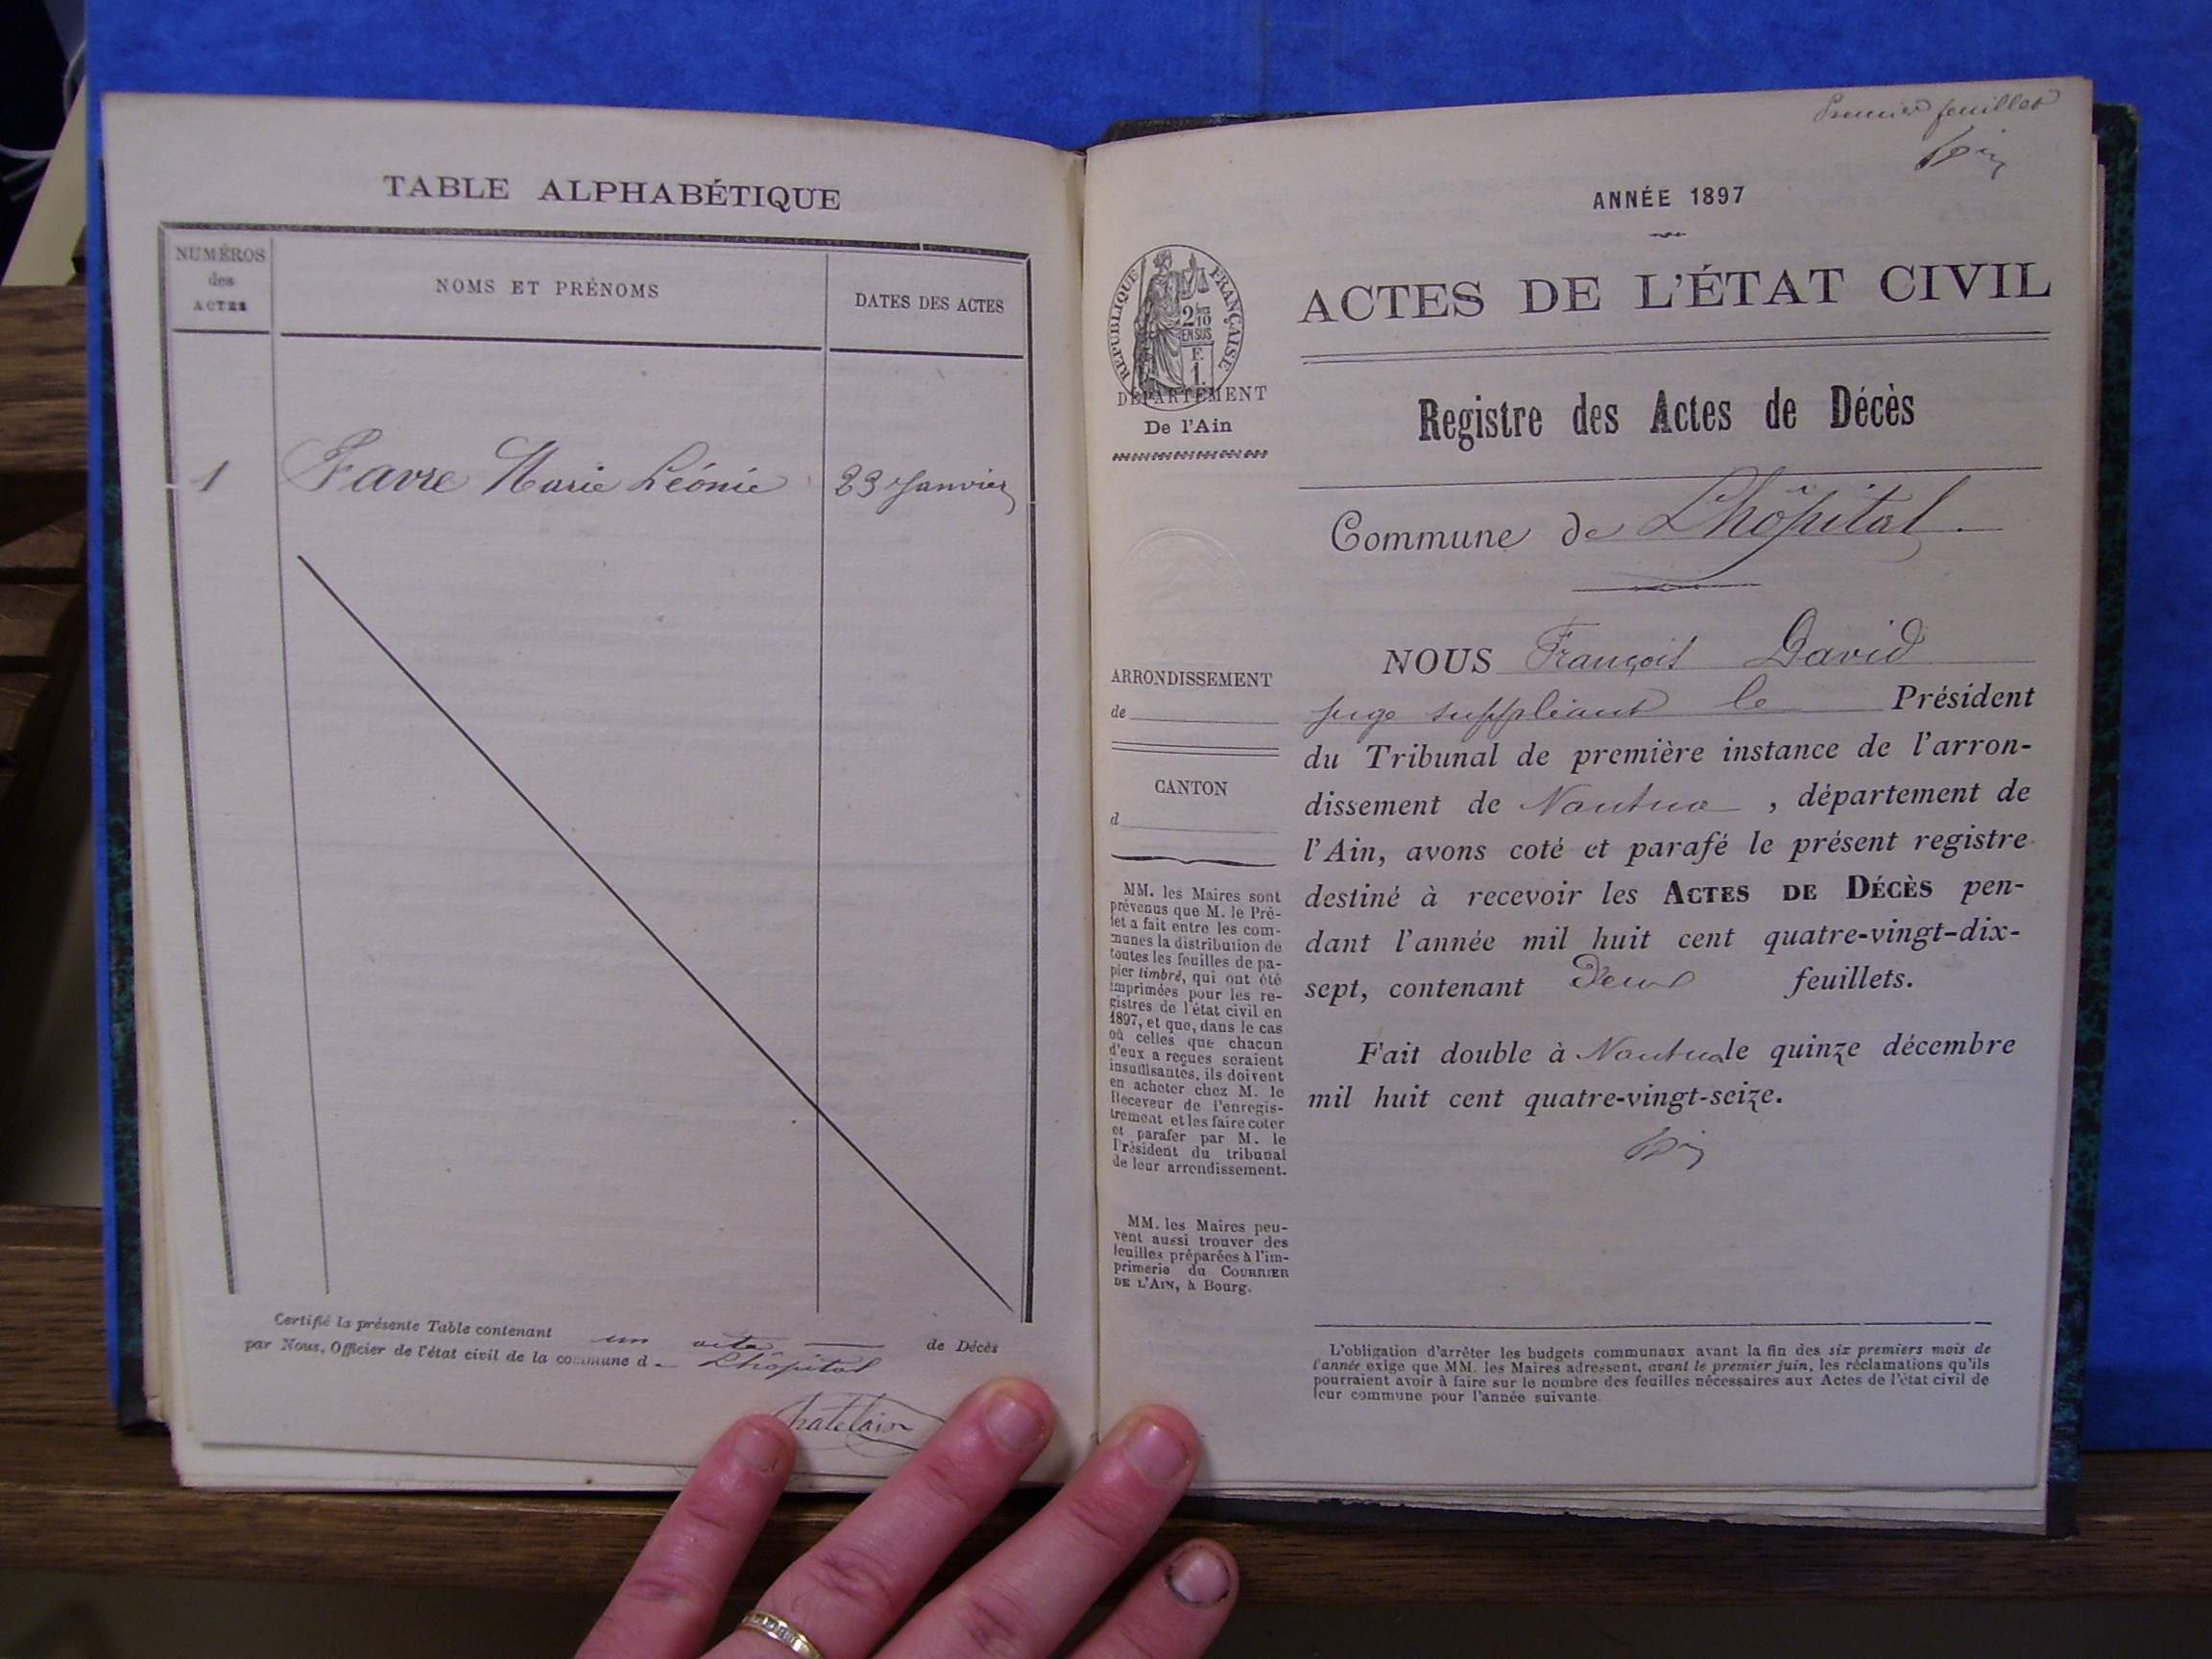 TABLE ALPHABÉTIQUE
NUMÉROS
des
ACTES
NOMS ET PRÉNOMS
DATES DES ACTES
1 Favre Marie Léonie 23 Janvier
Certifié la présente Table contenant un acte de Décès
par Nous, Officier de l'état civil de la commune d Lhôpital
Chatelain
Premier feuillet
ANNÉE 1897
RÉPUBLIQUE FRANÇAISE
2/10
EN SUS
F.
1.
DÉPARTEMENT
De l'Ain
ARRONDISSEMENT
de
CANTON
d
MM. les Maires sont
prévenus que M. le Pré-
fet a fait entre les com-
munes la distribution de
toutes les feuilles de pa-
pier timbré, qui ont été
imprimées pour les re-
gistres de l'état civil en
1897, et que, dans le cas
où celles que chacun
d'eux a reçues seraient
insuffisantes, ils doivent
en acheter chez M. le
Receveur de l'enregis-
trement et les faire coter
et parafer par M. le
Président du tribunal
de leur arrondissement.
MM. les Maires peu-
vent aussi trouver des
feuilles préparées à l'im-
primerie du COURRIER
DE L'AIN, à Bourg.
ACTES DE L'ÉTAT CIVIL
Registre des Actes de Décès
Commune de Lhôpital.
NOUS François David
juge suppléant le Président
du Tribunal de première instance de l'arron-
dissement de Nantua, département de
l'Ain, avons coté et parafé le présent registre
destiné à recevoir les ACTES DE DÉCÈS pen-
dant l'année mil huit cent quatre-vingt-dix-
sept, contenant Deux feuillets.
Fait double à Nantua le quinze décembre
mil huit cent quatre-vingt-seize.
L'obligation d'arrêter les budgets communaux avant la fin des six premiers mois de
l'année exige que MM. les Maires adressent, avant le premier juin, les réclamations qu'ils
pourraient avoir à faire sur le nombre des feuilles nécessaires aux Actes de l'état civil de
leur commune pour l'année suivante.